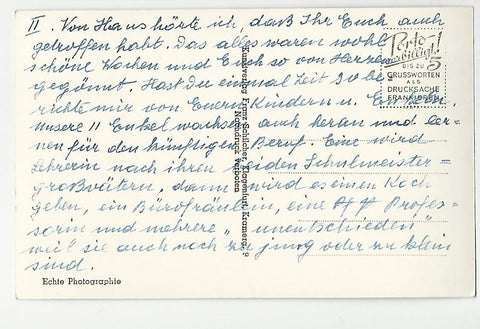 II. Von Hans hörte ich, daß Ihr Euch auch
getroffen habt. Das alles waren wohl
schöne Wochen und Euch so von Herzen
gegönnt. Hast Du einmal Zeit so be
richte mir von Euern Kindern u. Enkeln.
unsere 11 Enkel wachsen auch heran und ler-
nen für den künftigen Beruf. Eine wird
Lehrerin nach ihren beiden Schulmeister-
großvätern, dann wird es einen Koch
geben, ein Bürofräulein, eine Profes-
sorin und mehrere „unentschieden"
weil sie auch noch zu jung oder zu klein
sind.
Porto-
verbilligt!
BIS ZU 5
GRUSSWORTEN
ALS
DRUCKSACHE
FRANKIEREN
Kunstverlag Franz Schilcher, Klagenfurt, Kramerg. 9
Nachdruck verboten
Echte Photographie